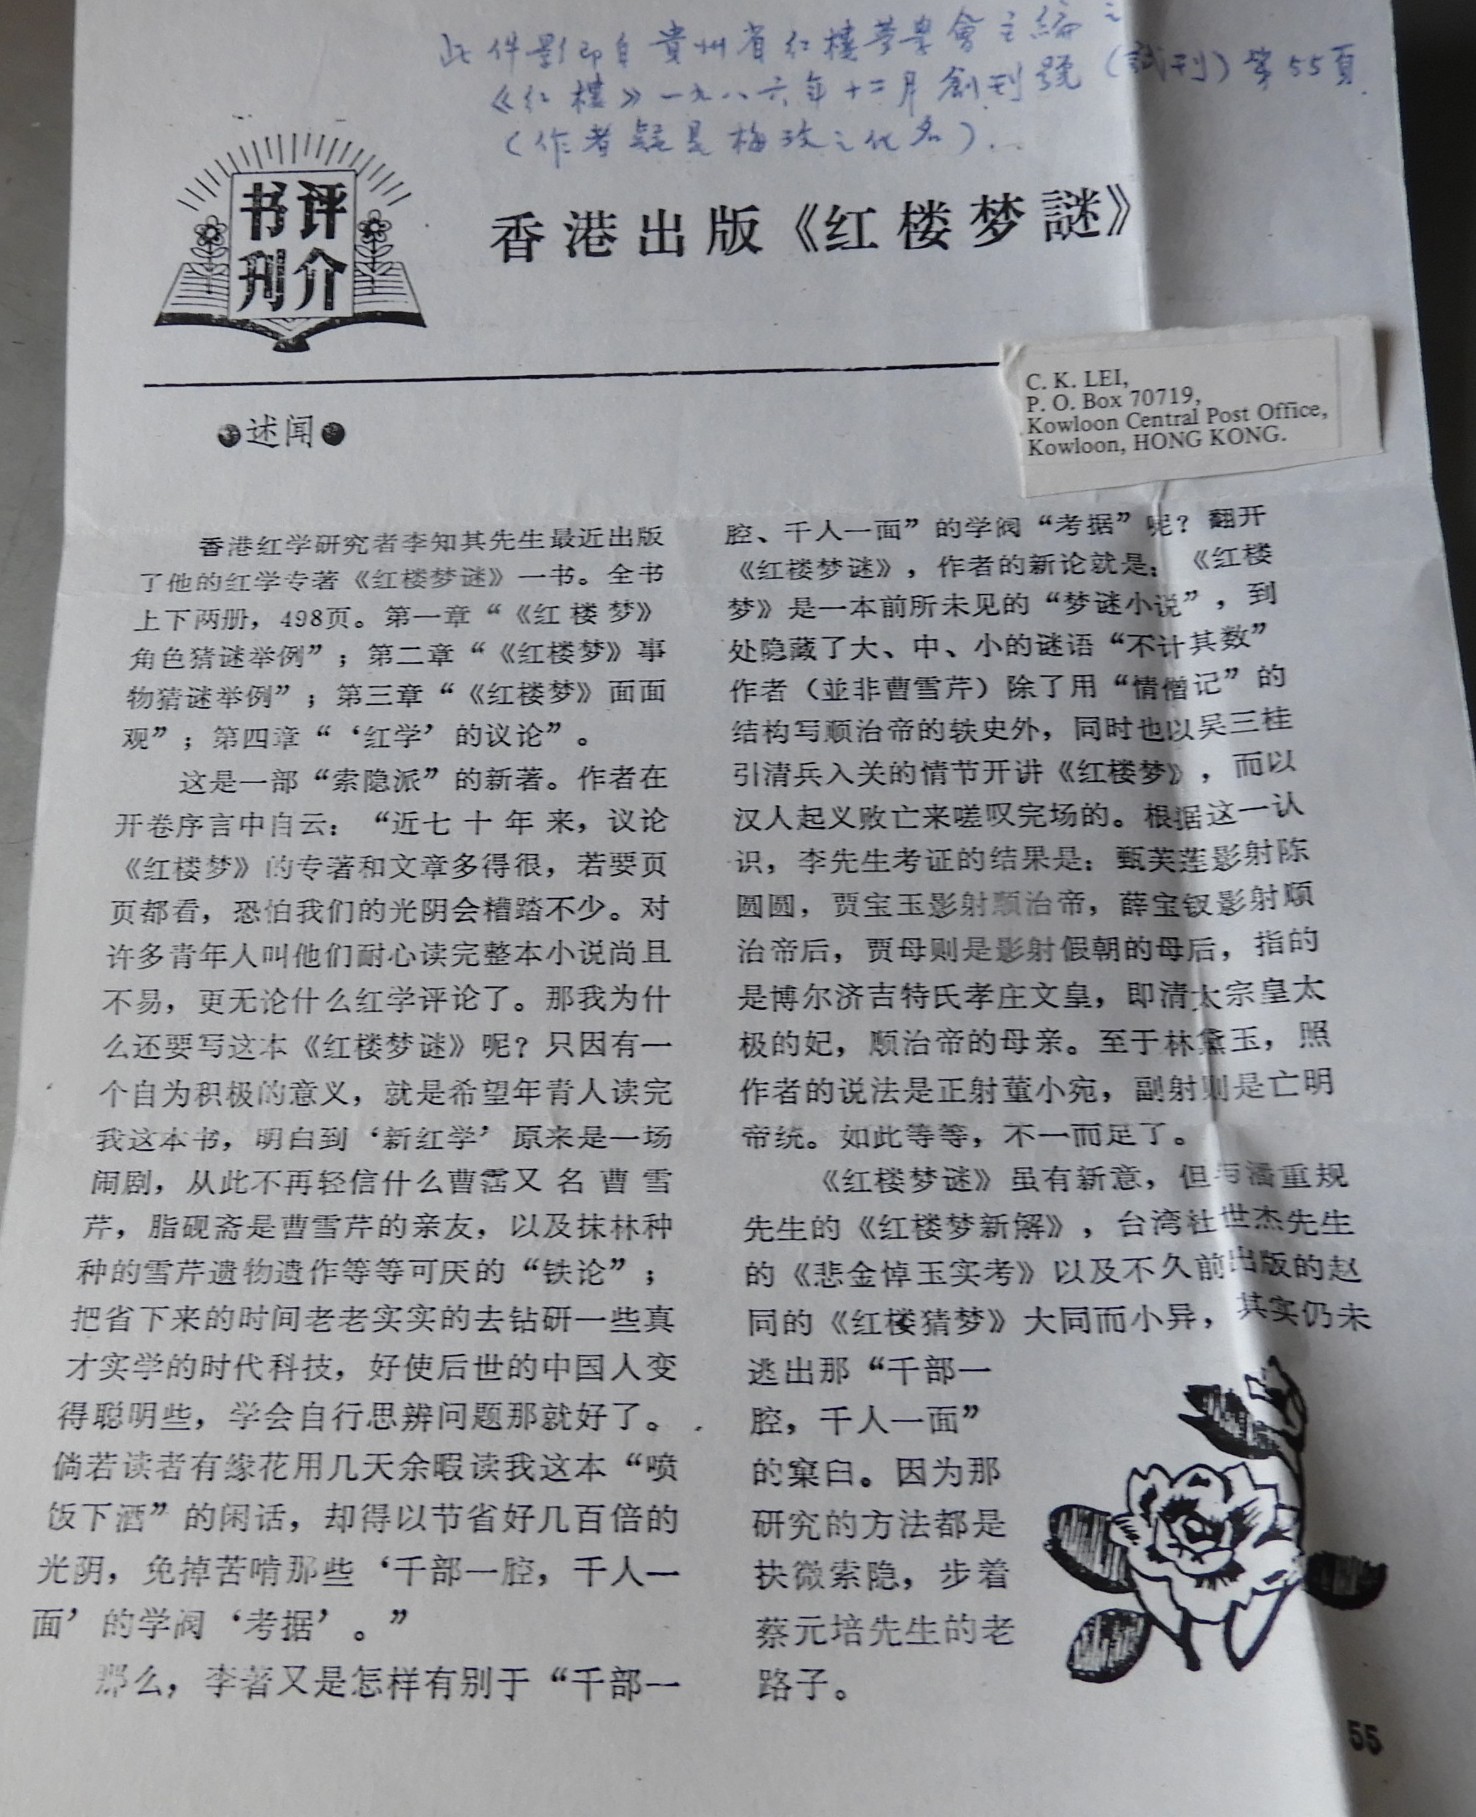 此件影印自貴州省红樓夢學會主編之
《红樓》一九八六年十二月創刊號(試刊)第55頁.
(作者疑是梅玫之化名)...
书评
刊介
香港出版《红楼梦謎》
C. K. LEI,
P. O. Box 70719,
Kowloon Central Post Office,
Kowloon, HONG KONG.
●述闻●
香港红学研究者李知其先生最近出版
了他的红学专著《红楼梦谜》一书。全书
上下两册，498页。第一章“《红楼梦》
角色猜谜举例”；第二章“《红楼梦》事
物猜谜举例”；第三章“《红楼梦》面面
观”；第四章“‘红学’的议论”。
这是一部“索隐派”的新著。作者在
开卷序言中自云：“近七十年来，议论
《红楼梦》的专著和文章多得很，若要页
页都看，恐怕我们的光阴会糟踏不少。对
许多青年人叫他们耐心读完整本小说尚且
不易，更无论什么红学评论了。那我为什
么还要写这本《红楼梦谜》呢？只因有一
个自为积极的意义，就是希望年青人读完
我这本书，明白到‘新红学’原来是一场
闹剧，从此不再轻信什么曹霑又名曹雪
芹，脂砚斋是曹雪芹的亲友，以及抹林种
种的雪芹遗物遗作等等可厌的“铁论”；
把省下来的时间老老实实的去钻研一些真
才实学的时代科技，好使后世的中国人变
得聪明些，学会自行思辨问题那就好了。
倘若读者有缘花用几天余暇读我这本“喷
饭下酒”的闲话，却得以节省好几百倍的
光阴，免掉苦啃那些‘千部一腔，千人一
面’的学阀‘考据’。”
那么，李著又是怎样有别于“千部一
腔、千人一面”的学阀“考据”呢？翻开
《红楼梦谜》，作者的新论就是：《红楼
梦》是一本前所未见的“梦谜小说”，到
处隐藏了大、中、小的谜语“不计其数”
作者（並非曹雪芹）除了用“情僧记”的
结构写顺治帝的轶史外，同时也以吴三桂
引清兵入关的情节开讲《红楼梦》，而以
汉人起义败亡来嗟叹完场的。根据这一认
识，李先生考证的结果是：甄英莲影射陈
圆圆，贾宝玉影射顺治帝，薛宝钗影射顺
治帝后，贾母则是影射假朝的母后，指的
是博尔济吉特氏孝庄文皇，即清太宗皇太
极的妃，顺治帝的母亲。至于林黛玉，照
作者的说法是正射董小宛，副射则是亡明
帝统。如此等等，不一而足了。
《红楼梦谜》虽有新意，但与潘重规
先生的《红楼梦新解》，台湾杜世杰先生
的《悲金悼玉实考》以及不久前出版的赵
同的《红楼猜梦》大同而小异，其实仍未
逃出那“千部一
腔，千人一面”
的窠臼。因为那
研究的方法都是
抉微索隐，步着
蔡元培先生的老
路子。
55